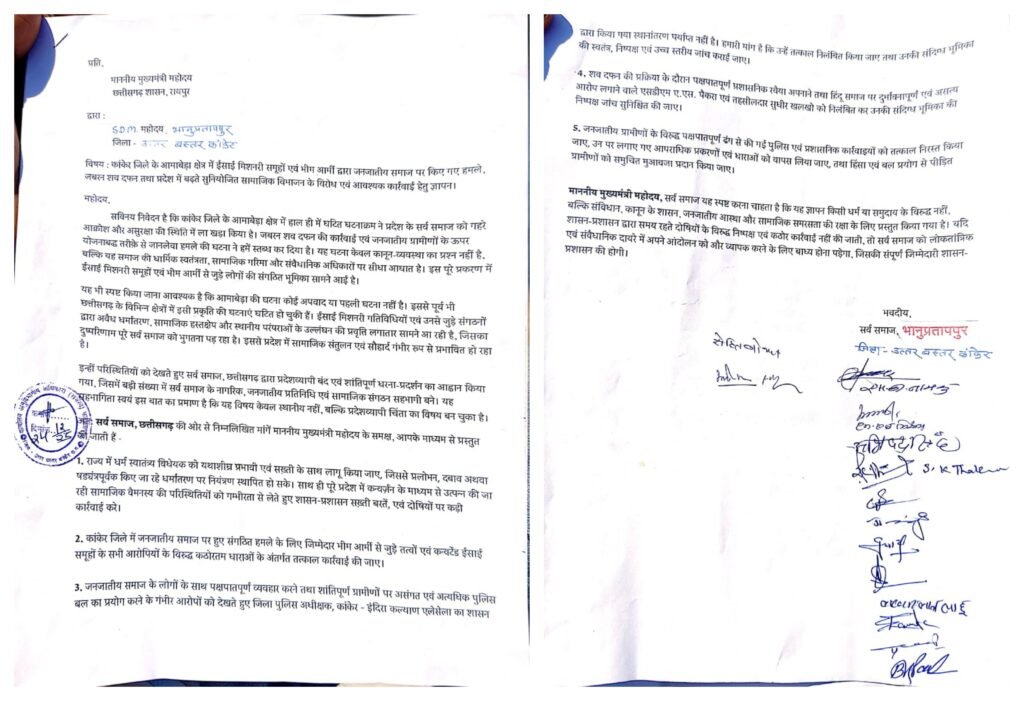 प्रति,
माननीय मुख्यमंत्री महोदय
छत्तीसगढ़ शासन, रायपुर
द्वारा :
S.D.M. महोदय, भानुप्रतापपुर
जिला - उत्तर बस्तर कांकेर
विषय : कांकेर जिले के आमाबेड़ा क्षेत्र में ईसाई मिशनरी समूहों एवं भीम आर्मी द्वारा जनजातीय समाज पर किए गए हमले,
जबरन शव दफन तथा प्रदेश में बढ़ते सुनियोजित सामाजिक विभाजन के विरोध एवं आवश्यक कार्रवाई हेतु ज्ञापन।
महोदय,
सविनय निवेदन है कि कांकेर जिले के आमाबेड़ा क्षेत्र में हाल ही में घटित घटनाक्रम ने प्रदेश के सर्व समाज को गहरे
आक्रोश और असुरक्षा की स्थिति में ला खड़ा किया है। जबरन शव दफन की कार्रवाई एवं जनजातीय ग्रामीणों के ऊपर
योजनाबद्ध तरीके से जानलेवा हमले की घटना ने हमें स्तब्ध कर दिया है। यह घटना केवल कानून-व्यवस्था का प्रश्न नहीं है,
बल्कि यह समाज की धार्मिक स्वतंत्रता, सामाजिक गरिमा और संवैधानिक अधिकारों पर सीधा आघात है। इस पूरे प्रकरण में
ईसाई मिशनरी समूहों एवं भीम आर्मी से जुड़े लोगों की संगठित भूमिका सामने आई है।
यह भी स्पष्ट किया जाना आवश्यक है कि आमाबेड़ा की घटना कोई अपवाद या पहली घटना नहीं है। इससे पूर्व भी
छत्तीसगढ़ के विभिन्न क्षेत्रों में इसी प्रकृति की घटनाएं घटित हो चुकी हैं। ईसाई मिशनरी गतिविधियों एवं उनसे जुड़े संगठनों
द्वारा अवैध धर्मांतरण, सामाजिक हस्तक्षेप और स्थानीय परंपराओं के उल्लंघन की प्रवृत्ति लगातार सामने आ रही है, जिसका
दुष्परिणाम पूरे सर्व समाज को भुगतना पड़ रहा है। इससे प्रदेश में सामाजिक संतुलन एवं सौहार्द गंभीर रूप से प्रभावित हो रहा
है।
इन्हीं परिस्थितियों को देखते हुए सर्व समाज, छत्तीसगढ़ द्वारा प्रदेशव्यापी बंद एवं शांतिपूर्ण धरना-प्रदर्शन का आह्वान किया
गया, जिसमें बड़ी संख्या में सर्व समाज के नागरिक, जनजातीय प्रतिनिधि एवं सामाजिक संगठन सहभागी बने। यह
सहभागिता स्वयं इस बात का प्रमाण है कि यह विषय केवल स्थानीय नहीं, बल्कि प्रदेशव्यापी चिंता का विषय बन चुका है।
सर्व समाज, छत्तीसगढ़ की ओर से निम्नलिखित मांगें माननीय मुख्यमंत्री महोदय के समक्ष, आपके माध्यम से प्रस्तुत
जाती हैं -
1. राज्य में धर्म स्वातंत्र्य विधेयक को यथाशीघ्र प्रभावी एवं सख्ती के साथ लागू किया जाए, जिससे प्रलोभन, दबाव अथवा
षड्यंत्रपूर्वक किए जा रहे धर्मांतरण पर नियंत्रण स्थापित हो सके। साथ ही पूरे प्रदेश में कन्वर्ज़न के माध्यम से उत्पन्न की जा
रही सामाजिक वैमनस्य की परिस्थितियों को गम्भीरता से लेते हुए शासन-प्रशासन सख़्ती बरतें, एवं दोषियों पर कड़ी
कार्रवाई करे।
2. कांकेर जिले में जनजातीय समाज पर हुए संगठित हमले के लिए जिम्मेदार भीम आर्मी से जुड़े तत्वों एवं कन्वर्टेड ईसाई
समूहों के सभी आरोपियों के विरुद्ध कठोरतम धाराओं के अंतर्गत तत्काल कार्रवाई की जाए।
3. जनजातीय समाज के लोगों के साथ पक्षपातपूर्ण व्यवहार करने तथा शांतिपूर्ण ग्रामीणों पर असंगत एवं अत्यधिक पुलिस
बल का प्रयोग करने के गंभीर आरोपों को देखते हुए जिला पुलिस अधीक्षक, कांकेर - इंदिरा कल्याण एलेसेला का शासन
द्वारा किया गया स्थानांतरण पर्याप्त नहीं है। हमारी मांग है कि उन्हें तत्काल निलंबित किया जाए तथा उनकी संदिग्ध भूमिका
की स्वतंत्र, निष्पक्ष एवं उच्च स्तरीय जांच कराई जाए।
4. शव दफन की प्रक्रिया के दौरान पक्षपातपूर्ण प्रशासनिक रवैया अपनाने तथा हिंदू समाज पर दुर्भावनापूर्ण एवं असत्य
आरोप लगाने वाले एसडीएम ए.एस. पैकरा एवं तहसीलदार सुधीर खलखो को निलंबित कर उनकी संदिग्ध भूमिका की
निष्पक्ष जांच सुनिश्चित की जाए।
5. जनजातीय ग्रामीणों के विरुद्ध पक्षपातपूर्ण ढंग से की गई पुलिस एवं प्रशासनिक कार्रवाइयों को तत्काल निरस्त किया
जाए, उन पर लगाए गए आपराधिक प्रकरणों एवं धाराओं को वापस लिया जाए, तथा हिंसा एवं बल प्रयोग से पीड़ित
ग्रामीणों को समुचित मुआवजा प्रदान किया जाए।
माननीय मुख्यमंत्री महोदय, सर्व समाज यह स्पष्ट करना चाहता है कि यह ज्ञापन किसी धर्म या समुदाय के विरुद्ध नहीं,
बल्कि संविधान, कानून के शासन, जनजातीय आस्था और सामाजिक समरसता की रक्षा के लिए प्रस्तुत किया गया है। यदि
शासन-प्रशासन द्वारा समय रहते दोषियों के विरुद्ध निष्पक्ष एवं कठोर कार्रवाई नहीं की जाती, तो सर्व समाज को लोकतांत्रिक
एवं संवैधानिक दायरे में अपने आंदोलन को और व्यापक करने के लिए बाध्य होना पड़ेगा, जिसकी संपूर्ण जिम्मेदारी शासन-
प्रशासन की होगी।
भवदीय,
सर्व समाज, भानुप्रतापपुर
जिला - उत्तर बस्तर कांकेर
S.K Thakur